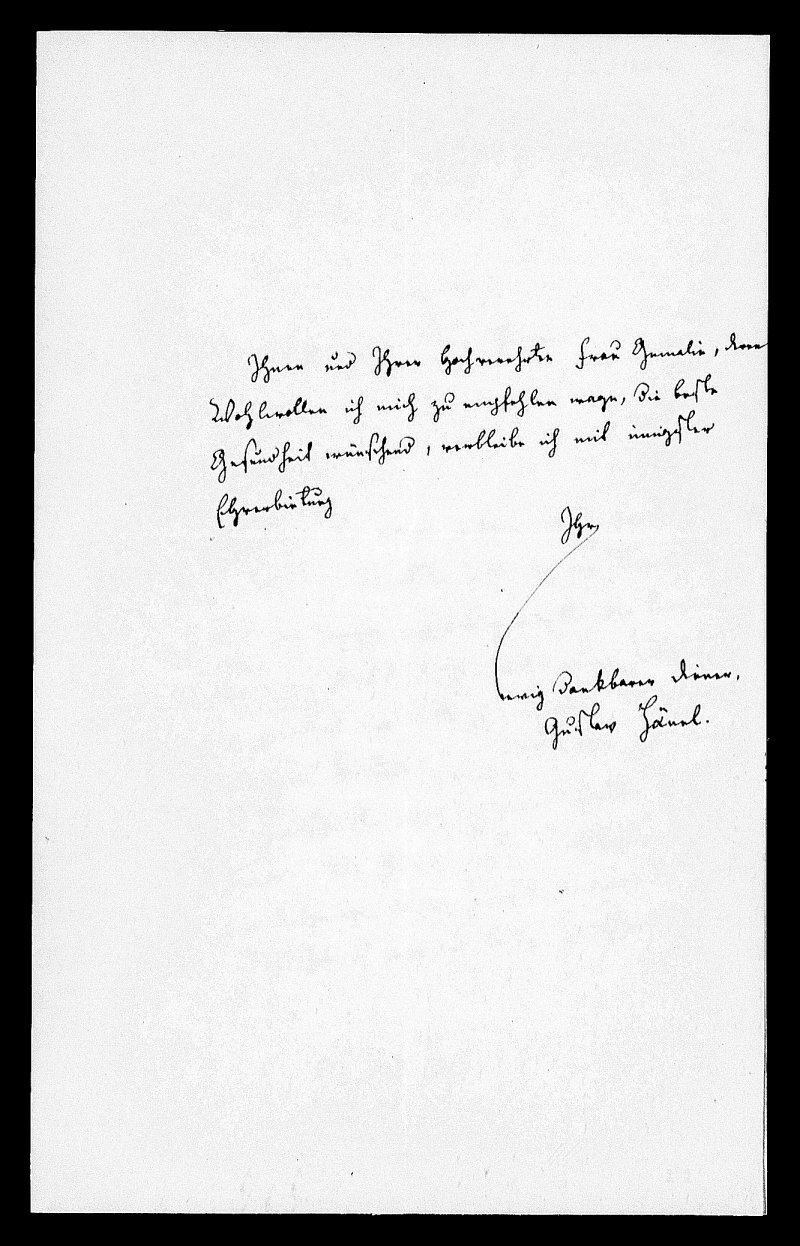 Ihnen und Ihrer Hochverehrten Frau Gemalin, deren
Wohlwollen ich mich zu empfehlen wage, die beste
Gesundheit wünschend, verbleibe ich mit innigster
Ehrerbietung
Ihr
ewig dankbarer Diener,
Gustav Hänel.